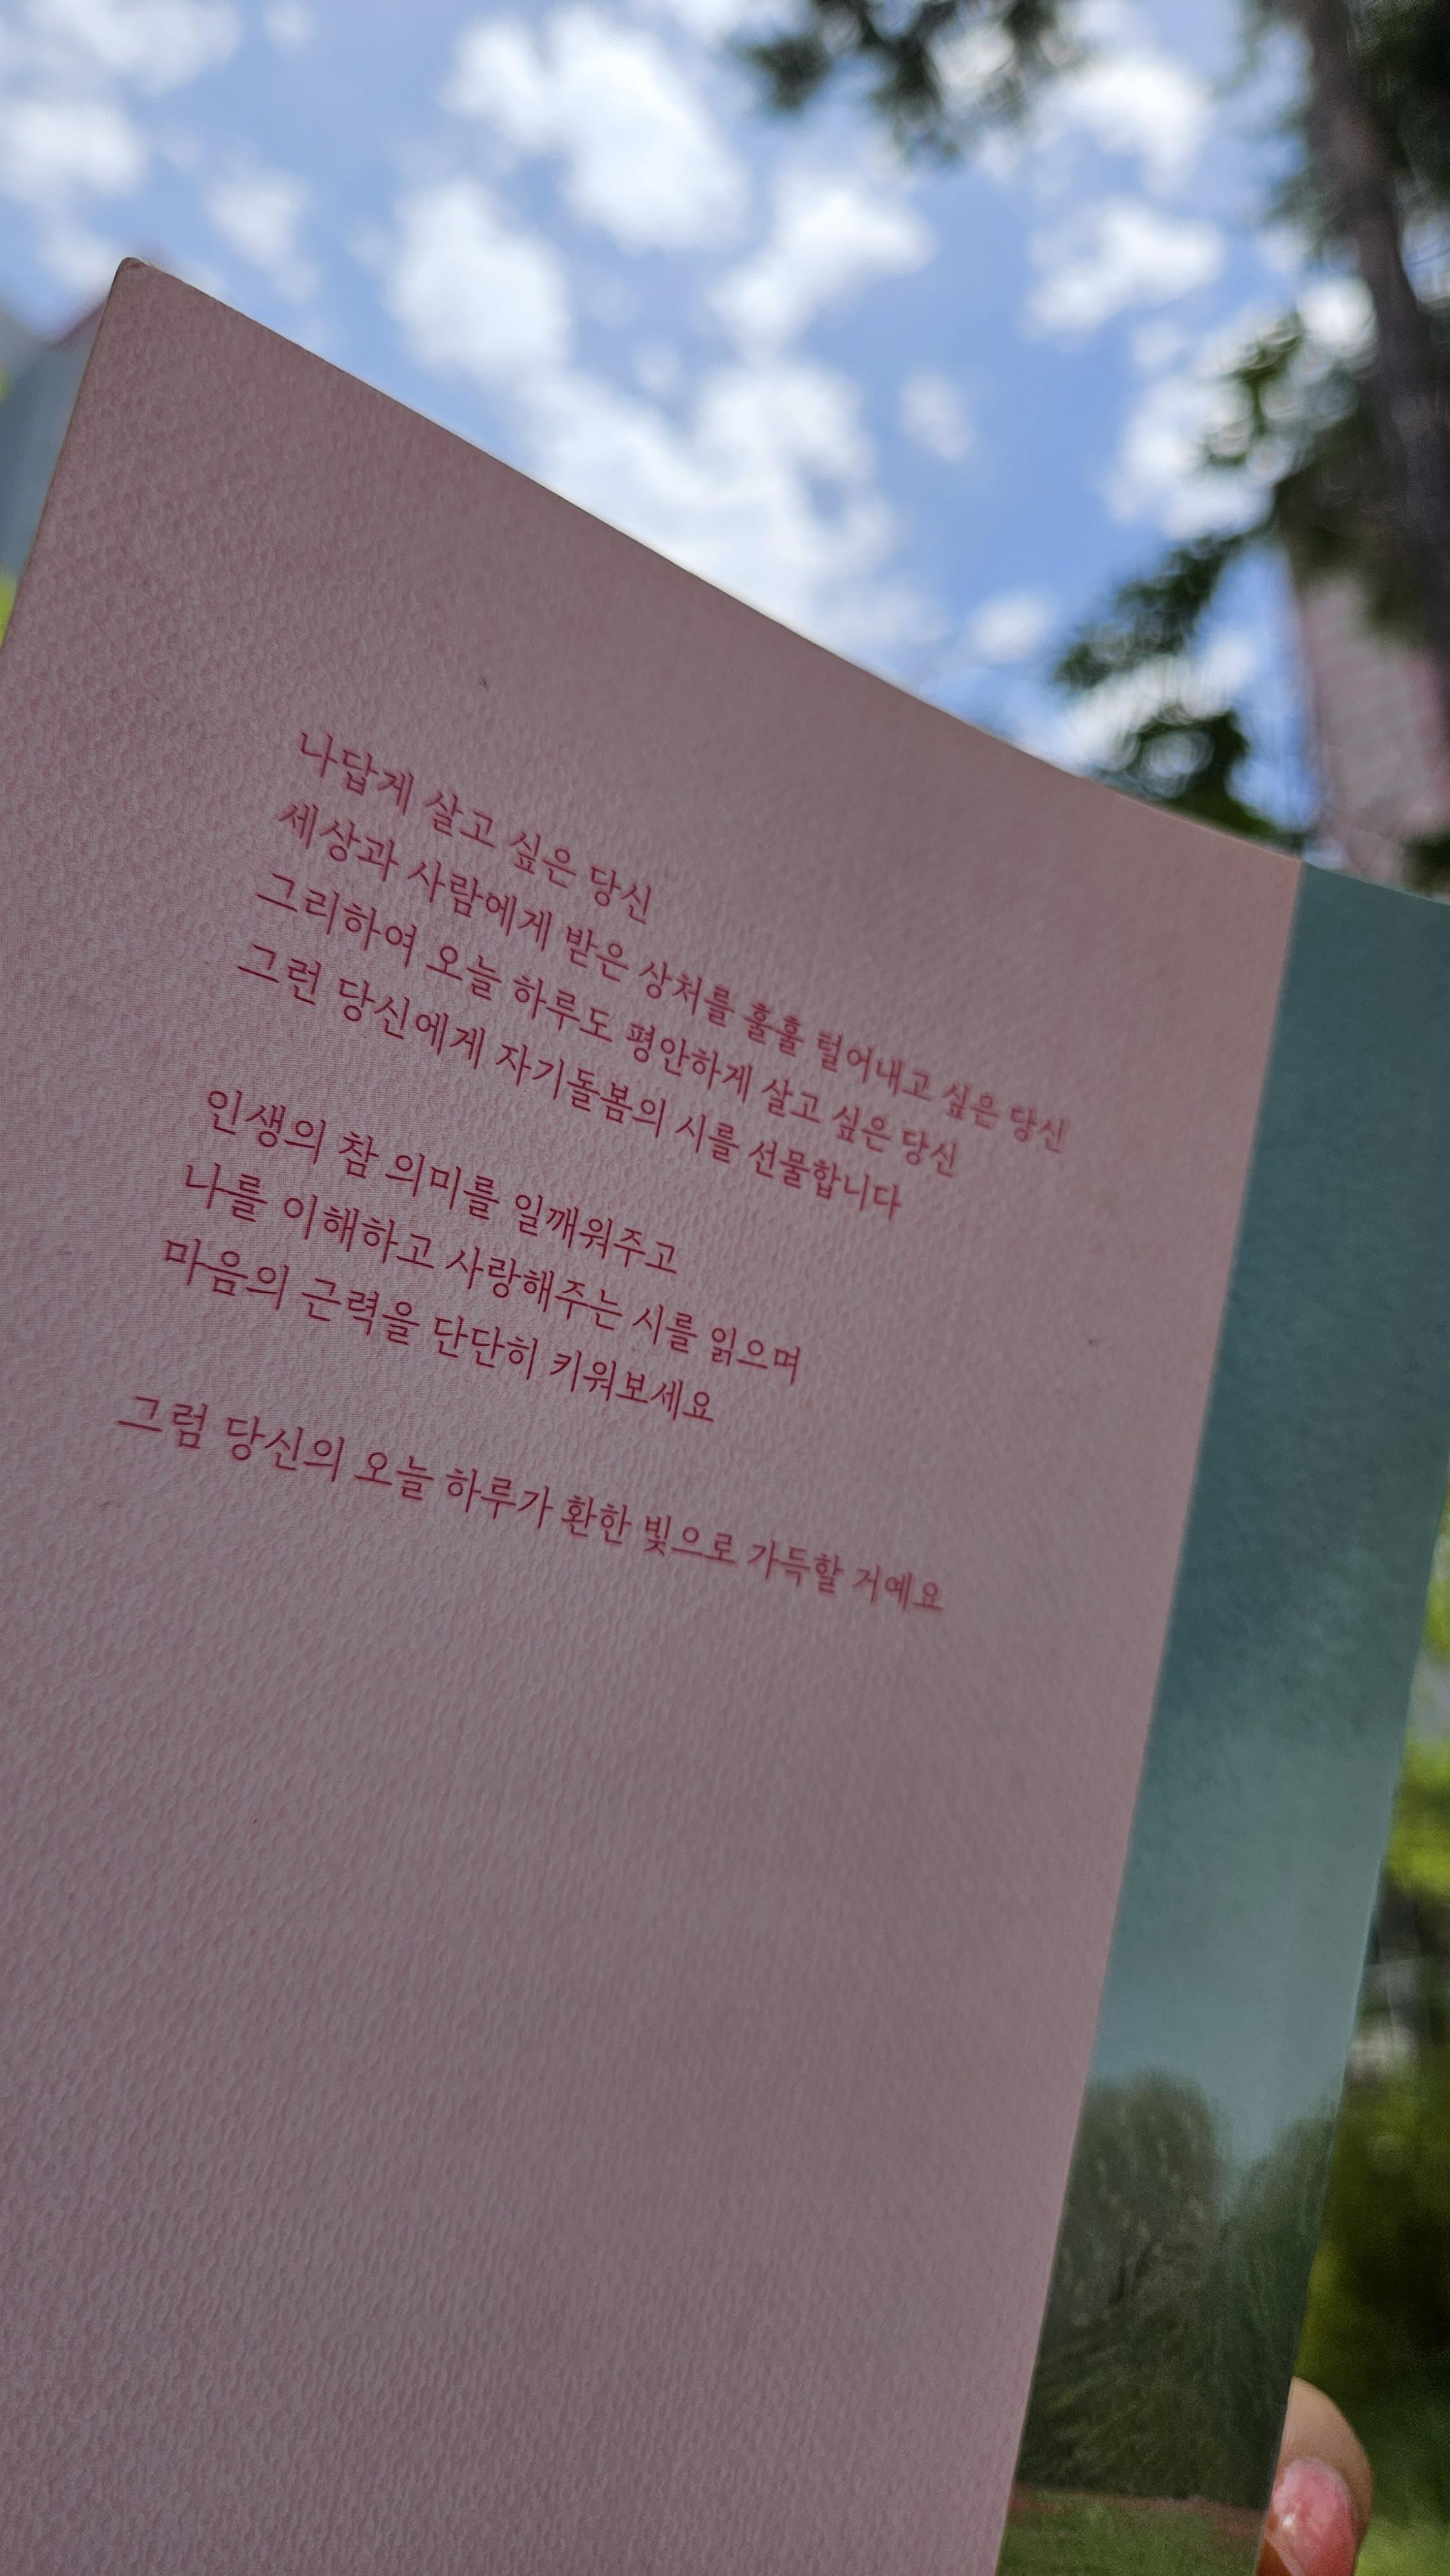 나답게 살고 싶은 당신
세상과 사람에게 받은 상처를 훌훌 털어내고 싶은 당신
그리하여 오늘 하루도 평안하게 살고 싶은 당신
그런 당신에게 자기돌봄의 시를 선물합니다
인생의 참 의미를 일깨워주고
나를 이해하고 사랑해주는 시를 읽으며
마음의 근력을 단단히 키워보세요
그럼 당신의 오늘 하루가 환한 빛으로 가득할 거예요